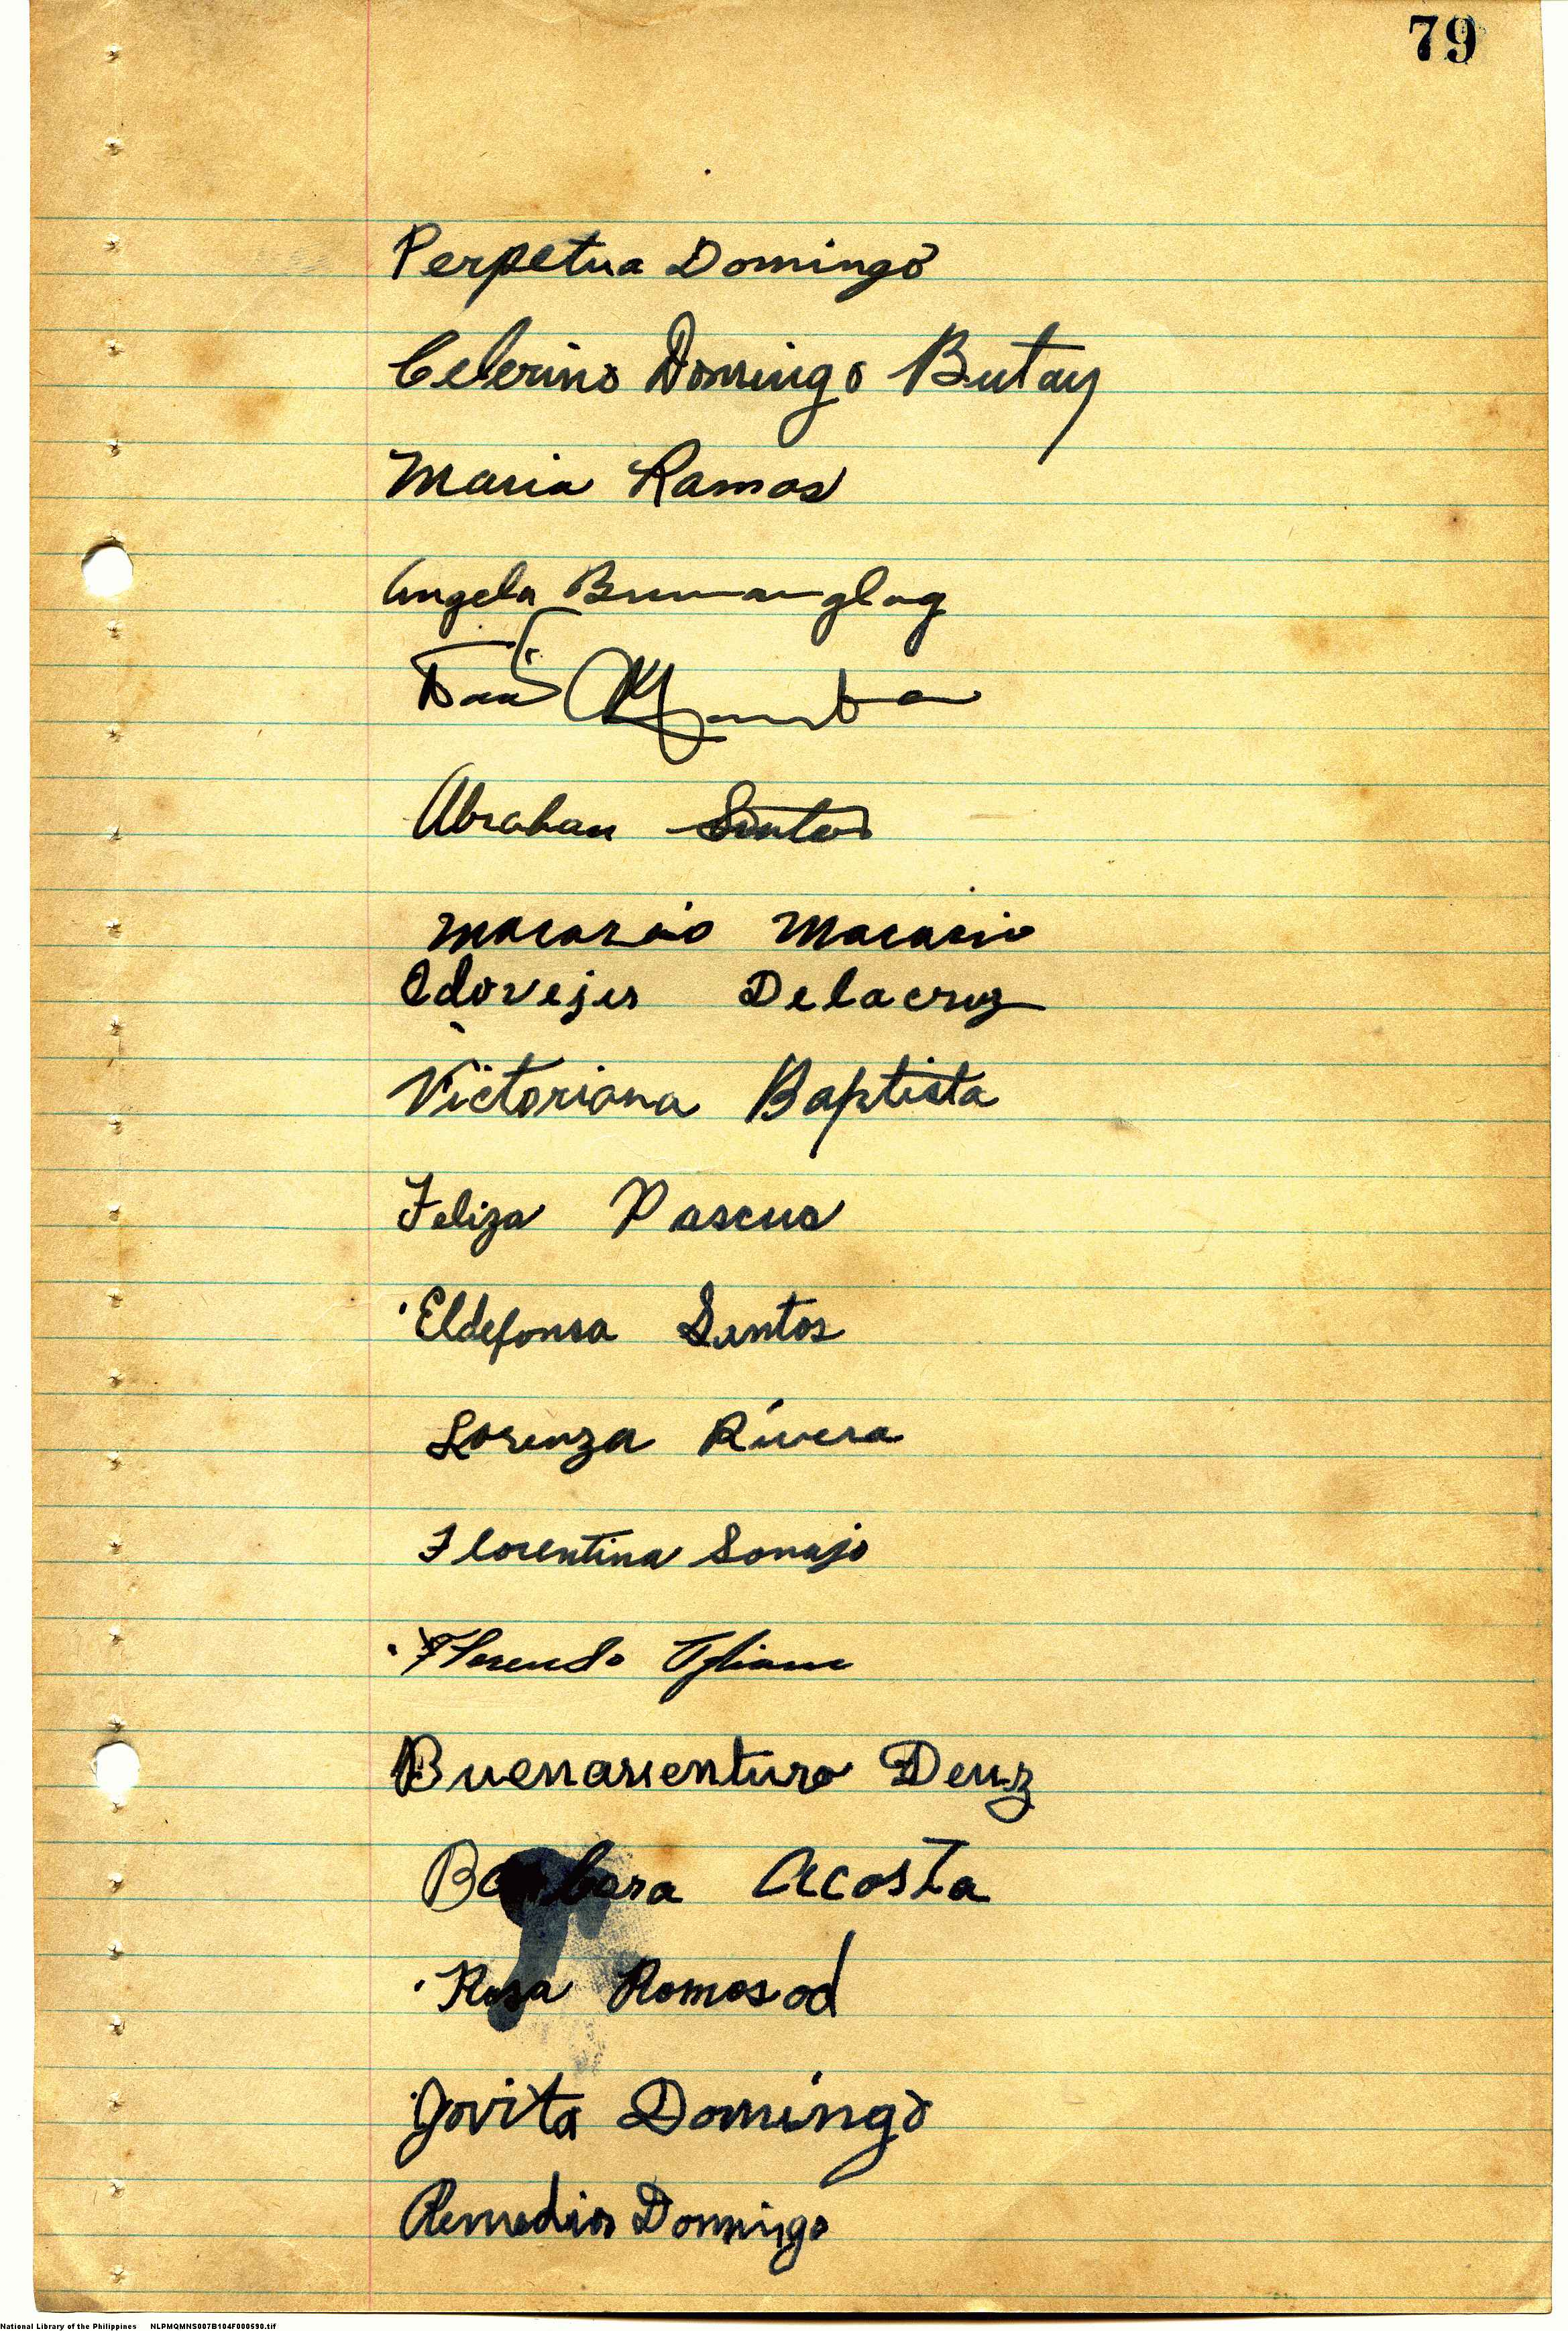 79
Perpetua Domingo
Celerino Domingo Butay
Maria Ramos
Angela Bumanglag
Abrahan Santos
Macario Macario
Edovejes Delacruz
Victoriana Baptista
Feliza Pascua
Eldefonsa Santos
Lorenza Rivera
Florentina Sonajo
Florendo
Buenaventura
Barbara Acosta
Rosa Romosod
Jovita Domingo
Remedios Domingo
National Library of the Philippines NLPMQMNS007B104F000590.tif